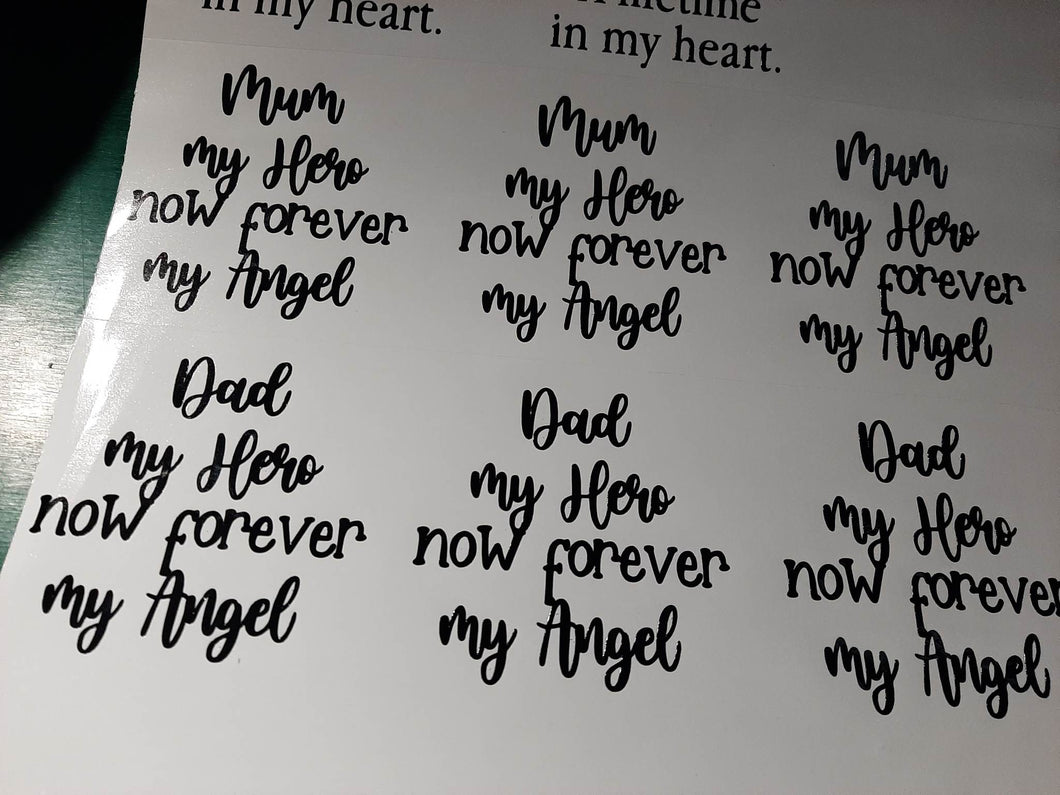 in my heart.
in my heart.
Mum
my Hero
now forever
my Angel
Mum
my Hero
now forever
my Angel
Mum
my Hero
now forever
my Angel
Dad
my Hero
now forever
my Angel
Dad
my Hero
now forever
my Angel
Dad
my Hero
now forever
my Angel